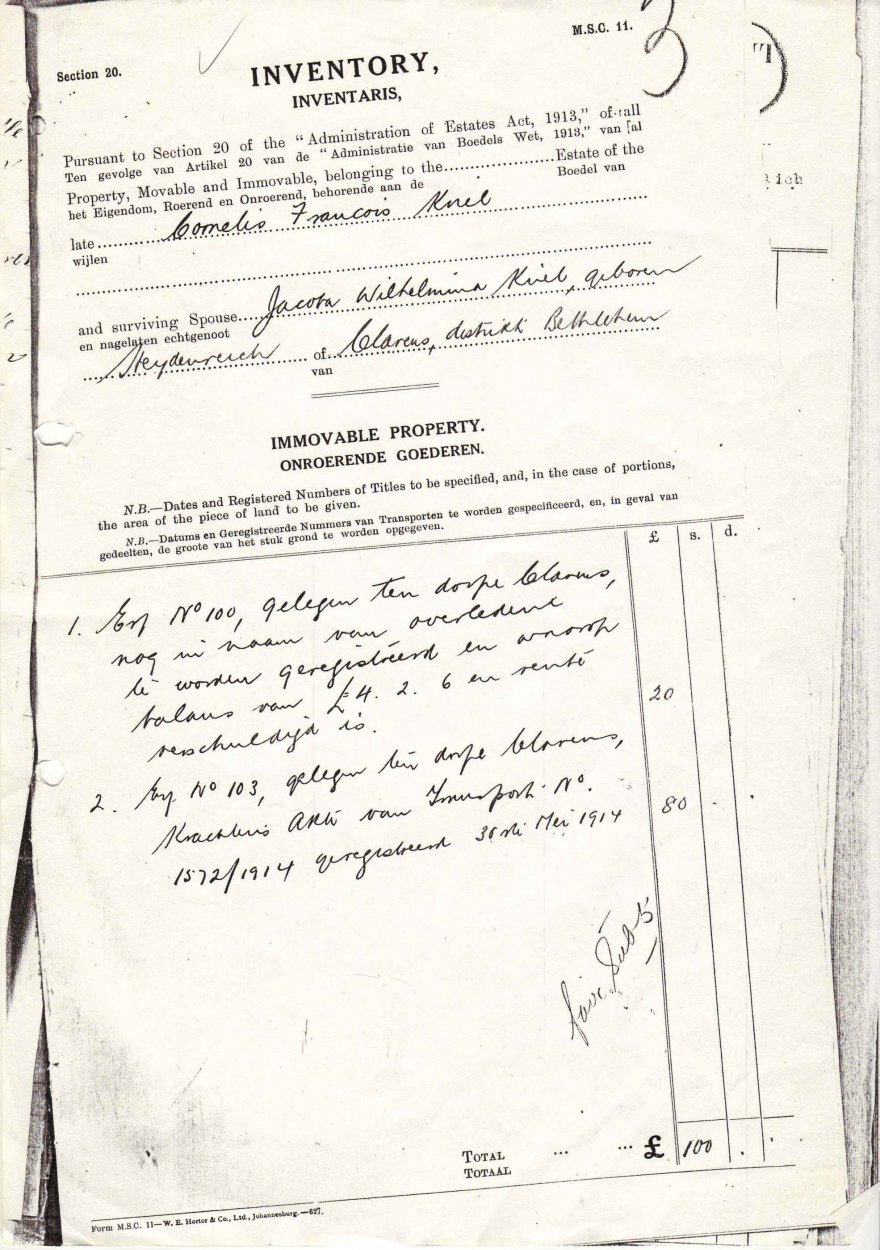 M.S.C. 11.
3
Section 20.
INVENTORY,
INVENTARIS,
Pursuant to Section 20 of the "Administration of Estates Act, 1913," of all
Ten gevolge van Artikel 20 van de "Administratie van Boedels Wet, 1913," van al
Property, Movable and Immovable, belonging to the....................Estate of the
het Eigendom, Roerend en Onroerend, behorende aan de Boedel van
late Cornelis Francois Kriel
wijlen
and surviving Spouse Jacoba Wilhelmina Kriel, geboren
en nagelaten echtgenoot
Heydenreich of Clarens, distrikt Bethlehem
van
IMMOVABLE PROPERTY.
ONROERENDE GOEDEREN.
N.B.—Dates and Registered Numbers of Titles to be specified, and, in the case of portions,
the area of the piece of land to be given.
N.B.—Datums en Geregistreerde Nummers van Transporten te worden gespecificeerd, en, in geval van
gedeelten, de groote van het stuk grond te worden opgegeven.
£ s. d.
1. Erf No 100, gelegen ten dorpe Clarens,
nog in naam van overledene
te worden geregistreerd en waarop
balans van £4. 2. 6 en rente
verschuldigd is. 20
2. Erf No 103, gelegen ten dorpe Clarens,
Krachtens Akte van Transport No.
1572/1914 geregistreerd 30ste Mei 1914 80
TOTAL ... ... £ 100
TOTAAL
Form M.S.C. 11—W. E. Hortor & Co., Ltd., Johannesburg.—627.
ich